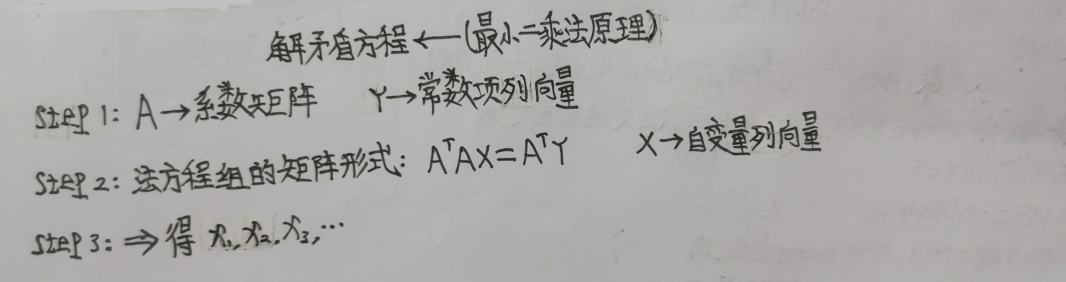 解矛盾方程←(最小二乘法原理)
Step 1: A→系数矩阵 Y→常数项列向量
Step 2: 法方程组的矩阵形式: AᵀAX=AᵀY X→自变量列向量
Step 3: ⇒得 x₁,x₂,x₃,…